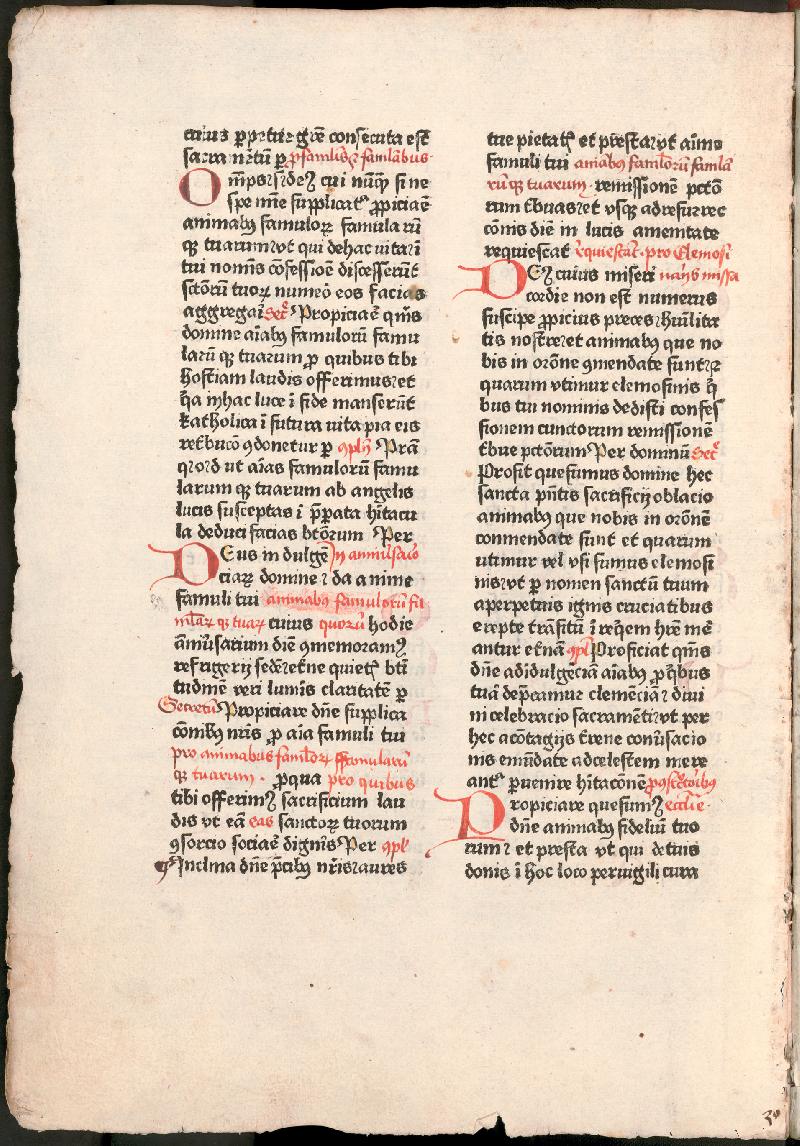 cuius ꝑpetue grē consecuta est
sacramētū ꝑ ꝓ famulis ꝫ famulabus
Omps s deꝫ cui nūqꝫ sine
spe mīe supplicat᷑ ꝓpiciaē
animabꝫ famuloꝝ famularū
qꝫ tuarum vt qui de hac uita ī
tui nomīs cōfessioē discesserūt
sctōrū tuoꝝ numeō eos facias
aggregaī Secr̄ Propiciaē qm̄s
domine aīabꝫ famulorū famu
larū qꝫ tuarum ꝓ quibus tibi
hostiam laudis offerimus et
q̄a in hac luce ī fide manserūt
katholica ī futura uita pia eis
retbucō ꝯdonetur ꝑ ꝯplēn Prā
qs d ut aīas famulorū famu
larum qꝫ tuarum ab angelis
lucis susceptas ī p̄ꝑata hītacu
la deduci facias btōrum Per
Deus indulgē In anniu̇saio
ciaꝝ domine ꝫ da anime
famuli tui animabꝫ famulorū fa
mlaꝝ qꝫ tuaꝝ cuius quorū hodie
ānīu̇sarium diē ꝯmemoramꝫ
refrigerij sedē et ne quietꝫ btī
tudinē veri lumīs claritatē ꝑ
Secretū Propiciare dn̄e supplica
cōnibꝫ nr̄is ꝓ aīa famuli tui
pro animabus famloꝝ ffamularū
qꝫ tuarum . ꝓ qua pro quibus
tibi offerimꝫ sacrificium lau
dis vt eā eas sanctoꝝ tuorum
ꝯsorcio sociaē dignīs Per ꝯpl
Inclina dn̄e p̄cibꝫ nr̄is aures
tue pietatꝭ et presta vt aīme
famuli tui animabꝫ famlorū famla
rū qꝫ tuarum remissionē pctō
rum tbuas et vsqꝫ ad resurrec
cōnis diē in lucis amenitate
requiescat requiescāt pro elemosi
Deꝫ cuius miseri nariis missa
cordie non est numerus
suscipe ꝓpicius preces hūilita
tis nostre et animabꝫ que no
bis in orōne ꝯmendate sunt ꝫ
quarum vtimur elemosinis q̄
bus tui nominis dedisti confes
sionem cunctorum remissionē
tbue pctōrum Per dominū Secr̄
Prosit quesumus domine hec
sancta pn̄tis sacrificij oblacio
animabꝫ que nobis in orōnē
conmendate sunt et quarum
utimur vel usi sumus elemosi
nis vt ꝑ nomen sanctū tuum
a perpetuis ignis cruciatibus
erepte trāsitū ī reqem hrē me
antur etnā ꝯpl Proficiat qm̄s
dn̄e ad īdulgēciā aīabꝫ ꝓ qbus
tuā dep̄camur clemēciā ꝫ diui
ni celebracio sacramēti vt per
hec a cōtagijs trene conu̇sacio
nis emūdate ad celestem mere
ant᷑ ꝑuenire hītacōnē
Propiciare quesumꝫ ecclīe
dn̄e animabꝫ fideliū tuo
rum ꝫ et presta vt qui de tuis
donis ī hoc loco peruigili cura